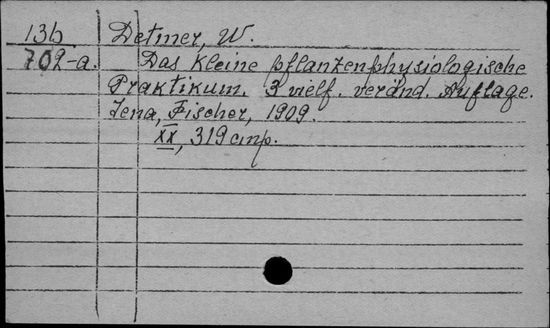 13b Detmer, W.
702-a. Das kleine pflanzenphysiologische
Praktikum. 3 vielf. veränd. Auflage.
Jena, Fischer, 1909.
XX, 319 стр.